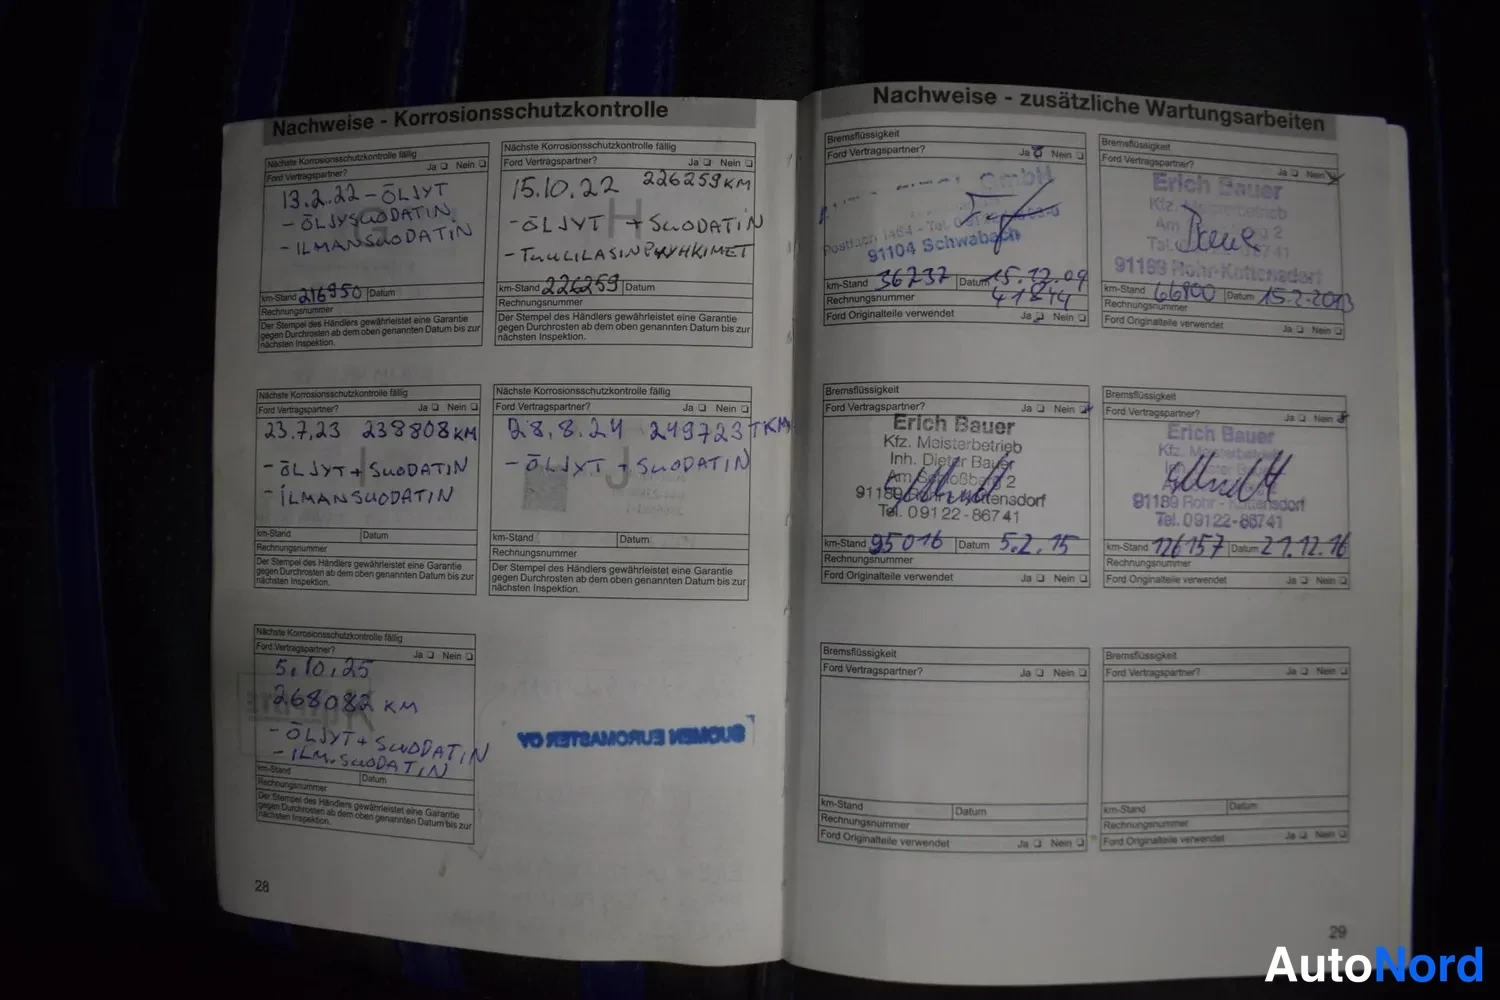 Nachweise - Korrosionsschutzkontrolle
Nächste Korrosionsschutzkontrolle fällig
Ford Vertragspartner? Ja Nein
13.2.22 - ÖLJYT
- ÖLJYSUODATIN
- ILMANSUODATIN
km-Stand 216950 Datum
Rechnungsnummer
Der Stempel des Händlers gewährleistet eine Garantie
gegen Durchrosten ab dem oben genannten Datum bis zur
nächsten Inspektion.
Nächste Korrosionsschutzkontrolle fällig
Ford Vertragspartner? Ja Nein
15.10.22 226259 KM
- ÖLJYT + SUODATIN
- TUULILASINPYYHKIMET
km-Stand 226259 Datum
Rechnungsnummer
Der Stempel des Händlers gewährleistet eine Garantie
gegen Durchrosten ab dem oben genannten Datum bis zur
nächsten Inspektion.
Nächste Korrosionsschutzkontrolle fällig
Ford Vertragspartner? Ja Nein
23.7.23 238808 KM
- ÖLJYT + SUODATIN
- ILMANSUODATIN
km-Stand Datum
Rechnungsnummer
Der Stempel des Händlers gewährleistet eine Garantie
gegen Durchrosten ab dem oben genannten Datum bis zur
nächsten Inspektion.
Nächste Korrosionsschutzkontrolle fällig
Ford Vertragspartner? Ja Nein
28.8.24 249723 TKM
- ÖLJYT + SUODATIN
km-Stand Datum
Rechnungsnummer
Der Stempel des Händlers gewährleistet eine Garantie
gegen Durchrosten ab dem oben genannten Datum bis zur
nächsten Inspektion.
Nächste Korrosionsschutzkontrolle fällig
Ford Vertragspartner? Ja Nein
5.10.25
268082 KM
- ÖLJYT + SUODATIN
- ILM.SUODATIN
km-Stand Datum
Rechnungsnummer
Der Stempel des Händlers gewährleistet eine Garantie
gegen Durchrosten ab dem oben genannten Datum bis zur
nächsten Inspektion.
SUOMEN EUROMASTER OY
28
Nachweise - zusätzliche Wartungsarbeiten
Bremsflüssigkeit
Ford Vertragspartner? Ja Nein
GmbH
Postfach 1464 - Tel.
91104 Schwabach
km-Stand 36737 Datum 15.12.09
Rechnungsnummer 41844
Ford Originalteile verwendet Ja Nein
Bremsflüssigkeit
Ford Vertragspartner? Ja Nein
Erich Bauer
Kfz. Meisterbetrieb
91189 Rohr-Kottensdorf
km-Stand 66800 Datum 15.2.2013
Rechnungsnummer
Ford Originalteile verwendet Ja Nein
Bremsflüssigkeit
Ford Vertragspartner? Ja Nein
Erich Bauer
Kfz. Meisterbetrieb
Inh. Dieter Bauer
Am Schloßberg 2
91189 Rohr-Kottensdorf
Tel. 09122-86741
km-Stand 95016 Datum 5.2.15
Rechnungsnummer
Ford Originalteile verwendet Ja Nein
Bremsflüssigkeit
Ford Vertragspartner? Ja Nein
Erich Bauer
Kfz. Meisterbetrieb
91189 Rohr - Kottensdorf
Tel. 09122-86741
km-Stand 126157 Datum 21.12.16
Rechnungsnummer
Ford Originalteile verwendet Ja Nein
Bremsflüssigkeit
Ford Vertragspartner? Ja Nein
km-Stand Datum
Rechnungsnummer
Ford Originalteile verwendet Ja Nein
Bremsflüssigkeit
Ford Vertragspartner? Ja Nein
km-Stand Datum
Rechnungsnummer
Ford Originalteile verwendet Ja Nein
29
AutoNord